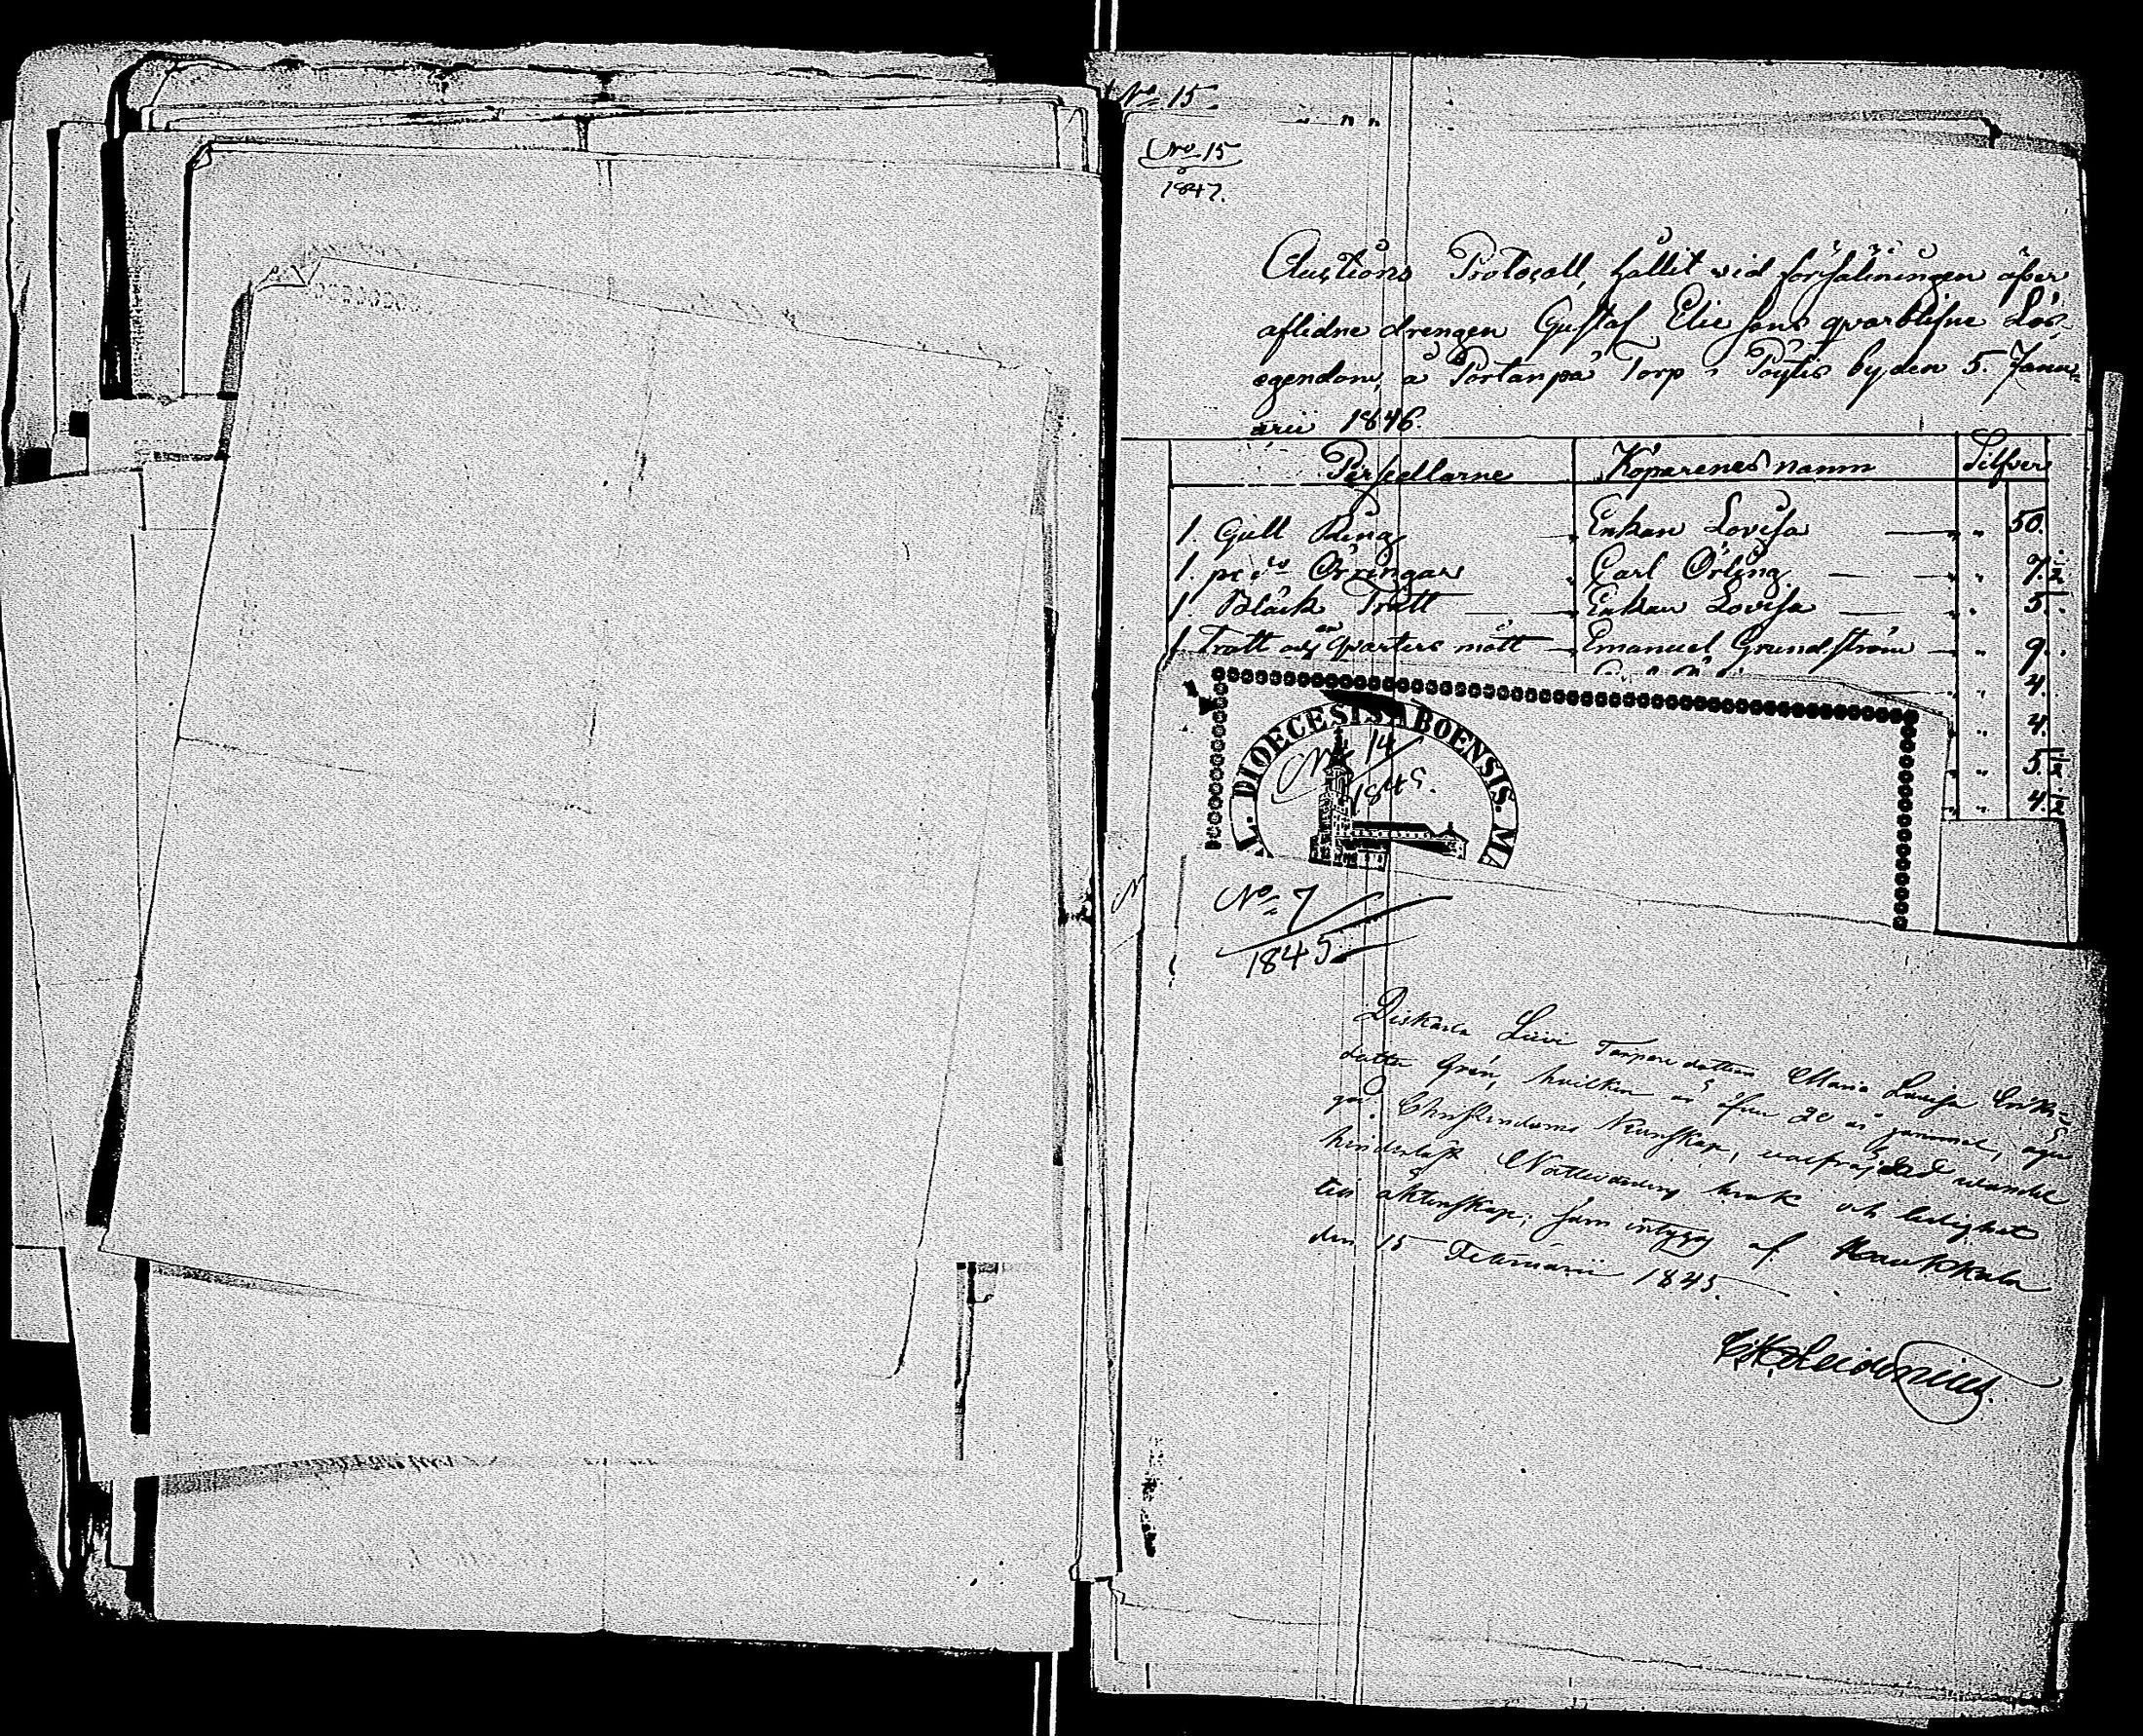 No 15
No 15
1847.
Auctions Protocoll, hållit wid försäliningen äfver
aflidne drengen Gustaf Elie sons qvarblifne Lös-
egendom, å Portanpä Torp i Pöytis by den 5. Janu-
arii 1846.
Perscellarne Köparenes namn Silfver
1. Gull Ring Enkan Lovisa " 50.
1. Örringar Carl Örling " 7. ½
1 Bläck Tratt Enkan Lovisa " 5.
1 Tratt och qvarters mått Emanuel Grundström " 9.
" 4.
" 4.
" 5. ½
" 4. ½
L. DIOECESIS ABOENSIS. MA
No 14
1845.
No 7
1845
Torpare dottren Maria Lovisa Eriks-
dotter Grön, hvilken är öfver 20 år gammal, äger
god Christendoms Kunskap, wälfräjdad wandel
hinderlöst Nattvardens bruk och ledighet
till äktenskap; som intygas af Kaukkala
den 15 Februarii 1845.